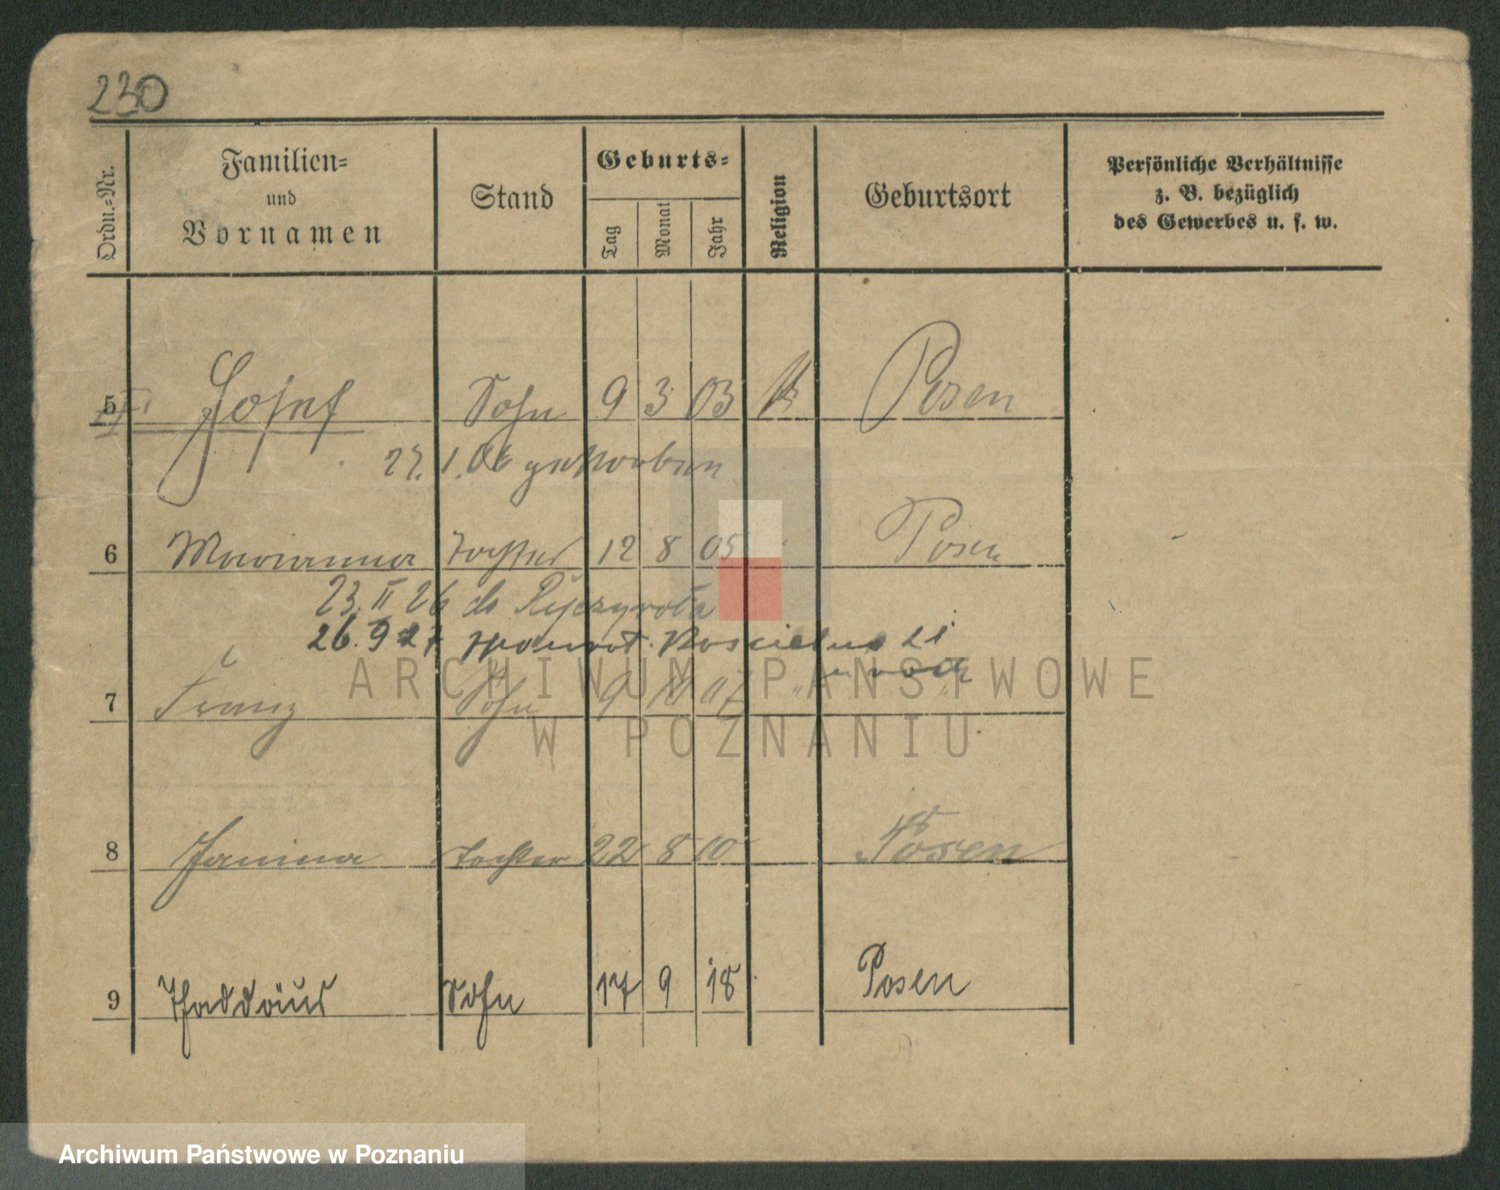 230
Ordn.-Nr.
Familien-
und
Vornamen
Stand
Geburts-
Tag
Monat
Jahr
Religion
Geburtsort
Persönliche Verhältnisse
z. B. bezüglich
des Gewerbes u. s. w.
5 Josef Sohn 9 3 03 K Posen
27. 1. 06 gestorben
6 Marianna Tochter 12 8 05 Posen
23. II 26 do
26. 9 27 21
7 Franz Sohn 9 10 07 "
8 Janina Tochter 22 8 10 Posen
9 Thaddäus Sohn 17 9 18 Posen
ARCHIWUM PAŃSTWOWE
W POZNANIU
Archiwum Państwowe w Poznaniu